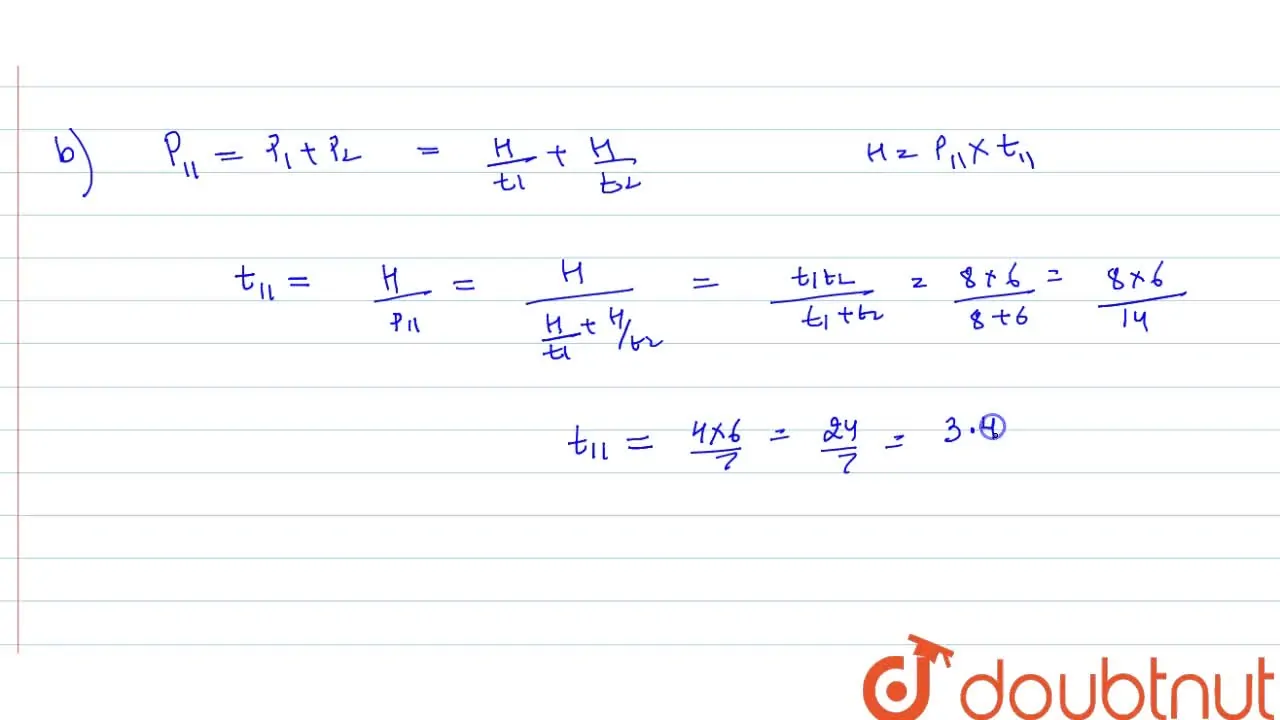 b) P₁₁ = P₁ + P₂ = H/t₁ + H/t₂ H = P₁₁ × t₁₁
t₁₁ = H/P₁₁ = H/(H/t₁ + H/t₂) = t₁t₂/(t₁ + t₂) = 8×6/(8+6) = 8×6/14
t₁₁ = 4×6/7 = 24/7 = 3.4
doubtnut